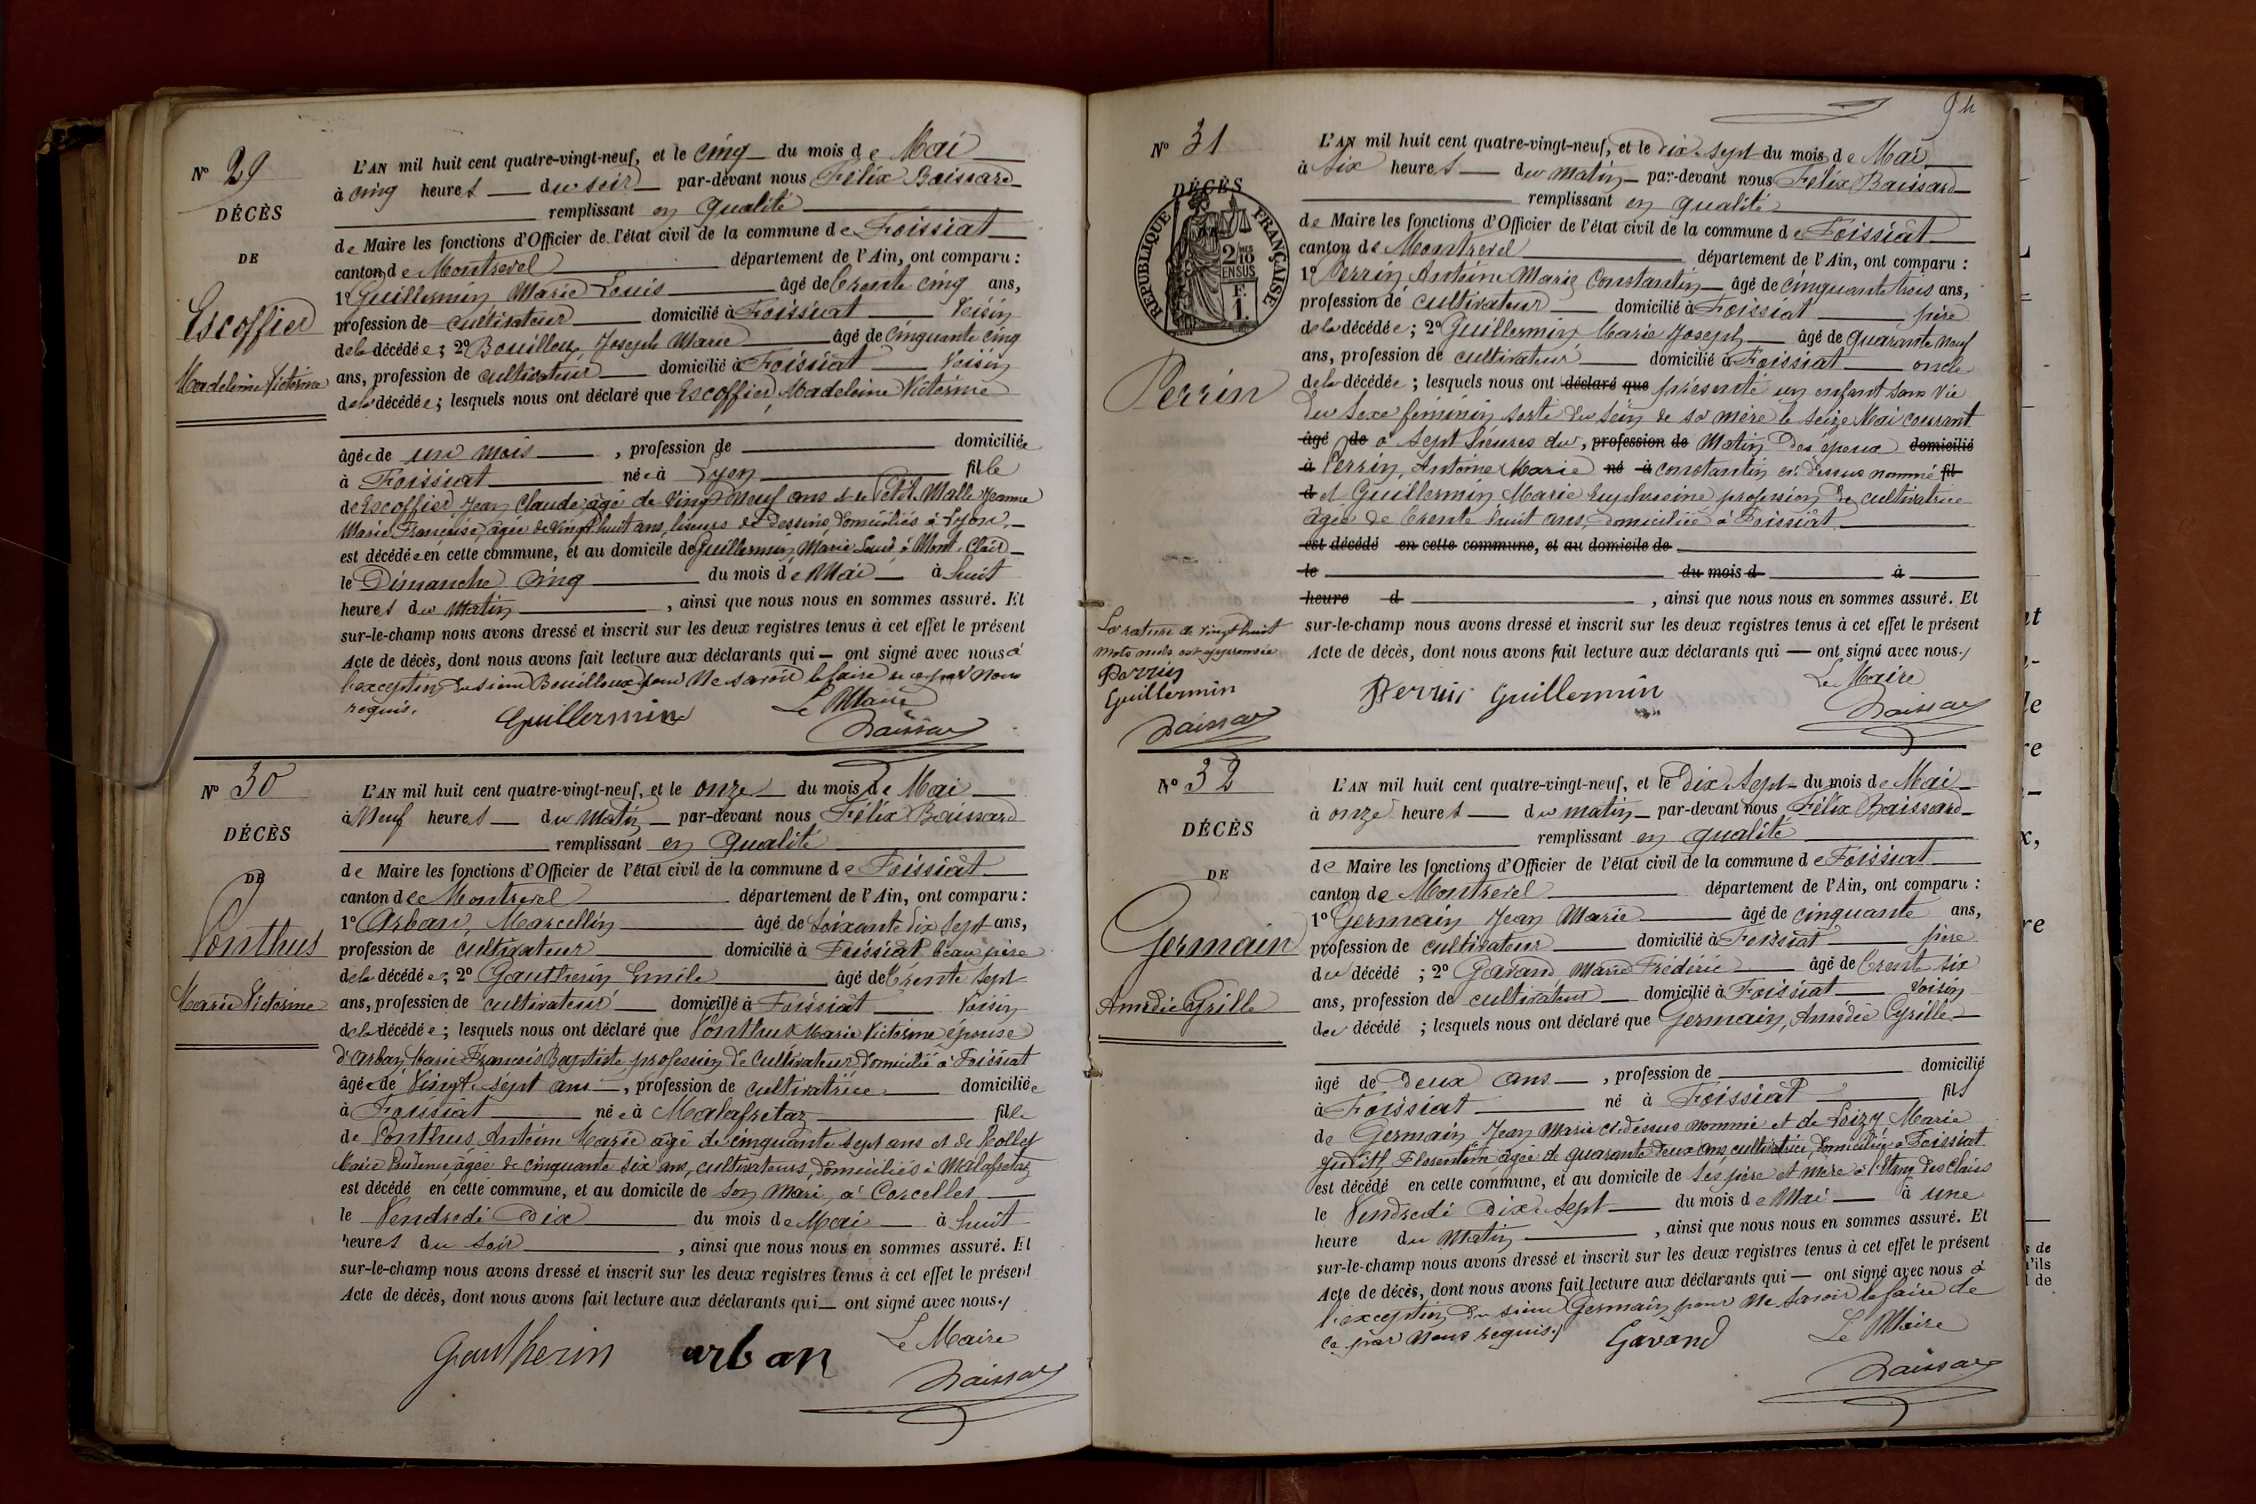 N° 29
DÉCÈS
DE
Escoffier
Madeleine Victorine
L'AN mil huit cent quatre-vingt-neuf, et le cinq du mois de Mai
à cinq heures du soir par-devant nous Félix Baissard
remplissant en qualité
de Maire les fonctions d'Officier de l'état civil de la commune de Foissiat
canton de Montrevel département de l'Ain, ont comparu :
1° Guillermin Marie Louis âgé de trente cinq ans,
profession de cultivateur domicilié à Foissiat Voisin
de la décédée ; 2° Bouilloux Joseph Marie âgé de cinquante cinq
ans, profession de cultivateur domicilié à Foissiat Voisin
de la décédée ; lesquels nous ont déclaré que Escoffier, Madeleine Victorine
âgée de un mois , profession de domiciliée
à Foissiat née à Lyon fille
de Escoffier Jean Claude âgé de vingt neuf ans et de Petit Malle Jeanne
Marie Françoise, âgée de vingt huit ans, liseurs de dessins, domiciliés à Lyon,
est décédée en cette commune, et au domicile de Guillermin Marie Louis à Mont-Clair
le Dimanche cinq du mois de Mai à huit
heures du Matin , ainsi que nous nous en sommes assuré. Et
sur-le-champ nous avons dressé et inscrit sur les deux registres tenus à cet effet le présent
Acte de décès, dont nous avons fait lecture aux déclarants qui — ont signé avec nous à
l'exception du sieur Bouilloux pour ne savoir le faire de ce par nous
requis.
Guillermin Le Maire
Baissard
N° 30
DÉCÈS
DE
Ponthus
Marie Victorine
L'AN mil huit cent quatre-vingt-neuf, et le onze du mois de Mai
à Neuf heures du Matin par-devant nous Félix Baissard
remplissant en qualité
de Maire les fonctions d'Officier de l'état civil de la commune de Foissiat
canton de Montrevel département de l'Ain, ont comparu :
1° Arban, Marcellin âgé de soixante dix sept ans,
profession de cultivateur domicilié à Foissiat beau père
de la décédée ; 2° Gautherin Emile âgé de trente sept
ans, profession de cultivateur domicilié à Foissiat Voisin
de la décédée ; lesquels nous ont déclaré que Ponthus Marie Victorine épouse
d'Arban, Marie François Baptiste, profession de cultivateur domicilié à Foissiat
âgée de vingt-sept ans , profession de cultivatrice domiciliée
à Foissiat née à Malafretaz fille
de Ponthus Antoine Marie âgé de cinquante sept ans et de Rollet
Marie Prudence, âgée de cinquante six ans, cultivateurs, domiciliés à Malafretaz
est décédé en cette commune, et au domicile de son mari, à Corcelles
le Vendredi Dix du mois de Mai à huit
heures du soir , ainsi que nous nous en sommes assuré. Et
sur-le-champ nous avons dressé et inscrit sur les deux registres tenus à cet effet le présent
Acte de décès, dont nous avons fait lecture aux déclarants qui — ont signé avec nous./
Gautherin arban Le Maire
Baissard
N° 31
DÉCÈS
RÉPUBLIQUE FRANÇAISE
2/10 EN SUS
F. 1.
Perrin
La rature de vingt huit
mots nuls est approuvée
Perrin
Guillermin
Baissard
L'AN mil huit cent quatre-vingt-neuf, et le dix-sept du mois de Mai
à six heures du matin par-devant nous Félix Baissard
remplissant en qualité
de Maire les fonctions d'Officier de l'état civil de la commune de Foissiat
canton de Montrevel département de l'Ain, ont comparu :
1° Perrin Antoine Marie Constantin âgé de cinquante trois ans,
profession de cultivateur domicilié à Foissiat père
de la décédée ; 2° Guillermin Marie Joseph âgé de quarante neuf
ans, profession de cultivateur domicilié à Foissiat oncle
de la décédée ; lesquels nous ont déclaré que présenté un enfant sans vie
du sexe féminin sorti du sein de sa mère le seize Mai courant
âgé de à sept heures du, profession de Matin des époux domicilié
à Perrin, Antoine Marie né à constantin ci dessus nommé fil
d et Guillermin Marie profession de cultivatrice
âgée de trente huit ans domiciliée à Foissiat
est décédé en cette commune, et au domicile de
le du mois d à
heure d , ainsi que nous nous en sommes assuré. Et
sur-le-champ nous avons dressé et inscrit sur les deux registres tenus à cet effet le présent
Acte de décès, dont nous avons fait lecture aux déclarants qui — ont signé avec nous./
Perrin Guillermin Le Maire
Baissard
N° 32
DÉCÈS
DE
Germain
Amédée Cyrille
L'AN mil huit cent quatre-vingt-neuf, et le Dix Sept du mois de Mai
à onze heures du matin par-devant nous Félix Baissard
remplissant en qualité
de Maire les fonctions d'Officier de l'état civil de la commune de Foissiat
canton de Montrevel département de l'Ain, ont comparu :
1° Germain Jean Marie âgé de cinquante ans,
profession de cultivateur domicilié à Foissiat père
du décédé ; 2° Gavand Marie Frédéric âgé de trente six
ans, profession de cultivateur domicilié à Foissiat voisin
du décédé ; lesquels nous ont déclaré que Germain, Amédée Cyrille
âgé de Deux ans , profession de domicilié
à Foissiat né à Foissiat fils
de Germain Jean Marie ci dessus nommé et de Loizy Marie
Judith Florentine âgée de quarante deux ans, cultivatrice, domiciliée à Foissiat
est décédé en cette commune, et au domicile de ses père et mère à l'Etang des Clairs
le Vendredi Dix-sept du mois de Mai à une
heure du Matin , ainsi que nous nous en sommes assuré. Et
sur-le-champ nous avons dressé et inscrit sur les deux registres tenus à cet effet le présent
Acte de décès, dont nous avons fait lecture aux déclarants qui — ont signé avec nous à
l'exception du sieur Germain pour ne savoir le faire de
ce par nous requis./ Gavand Le Maire
Baissard